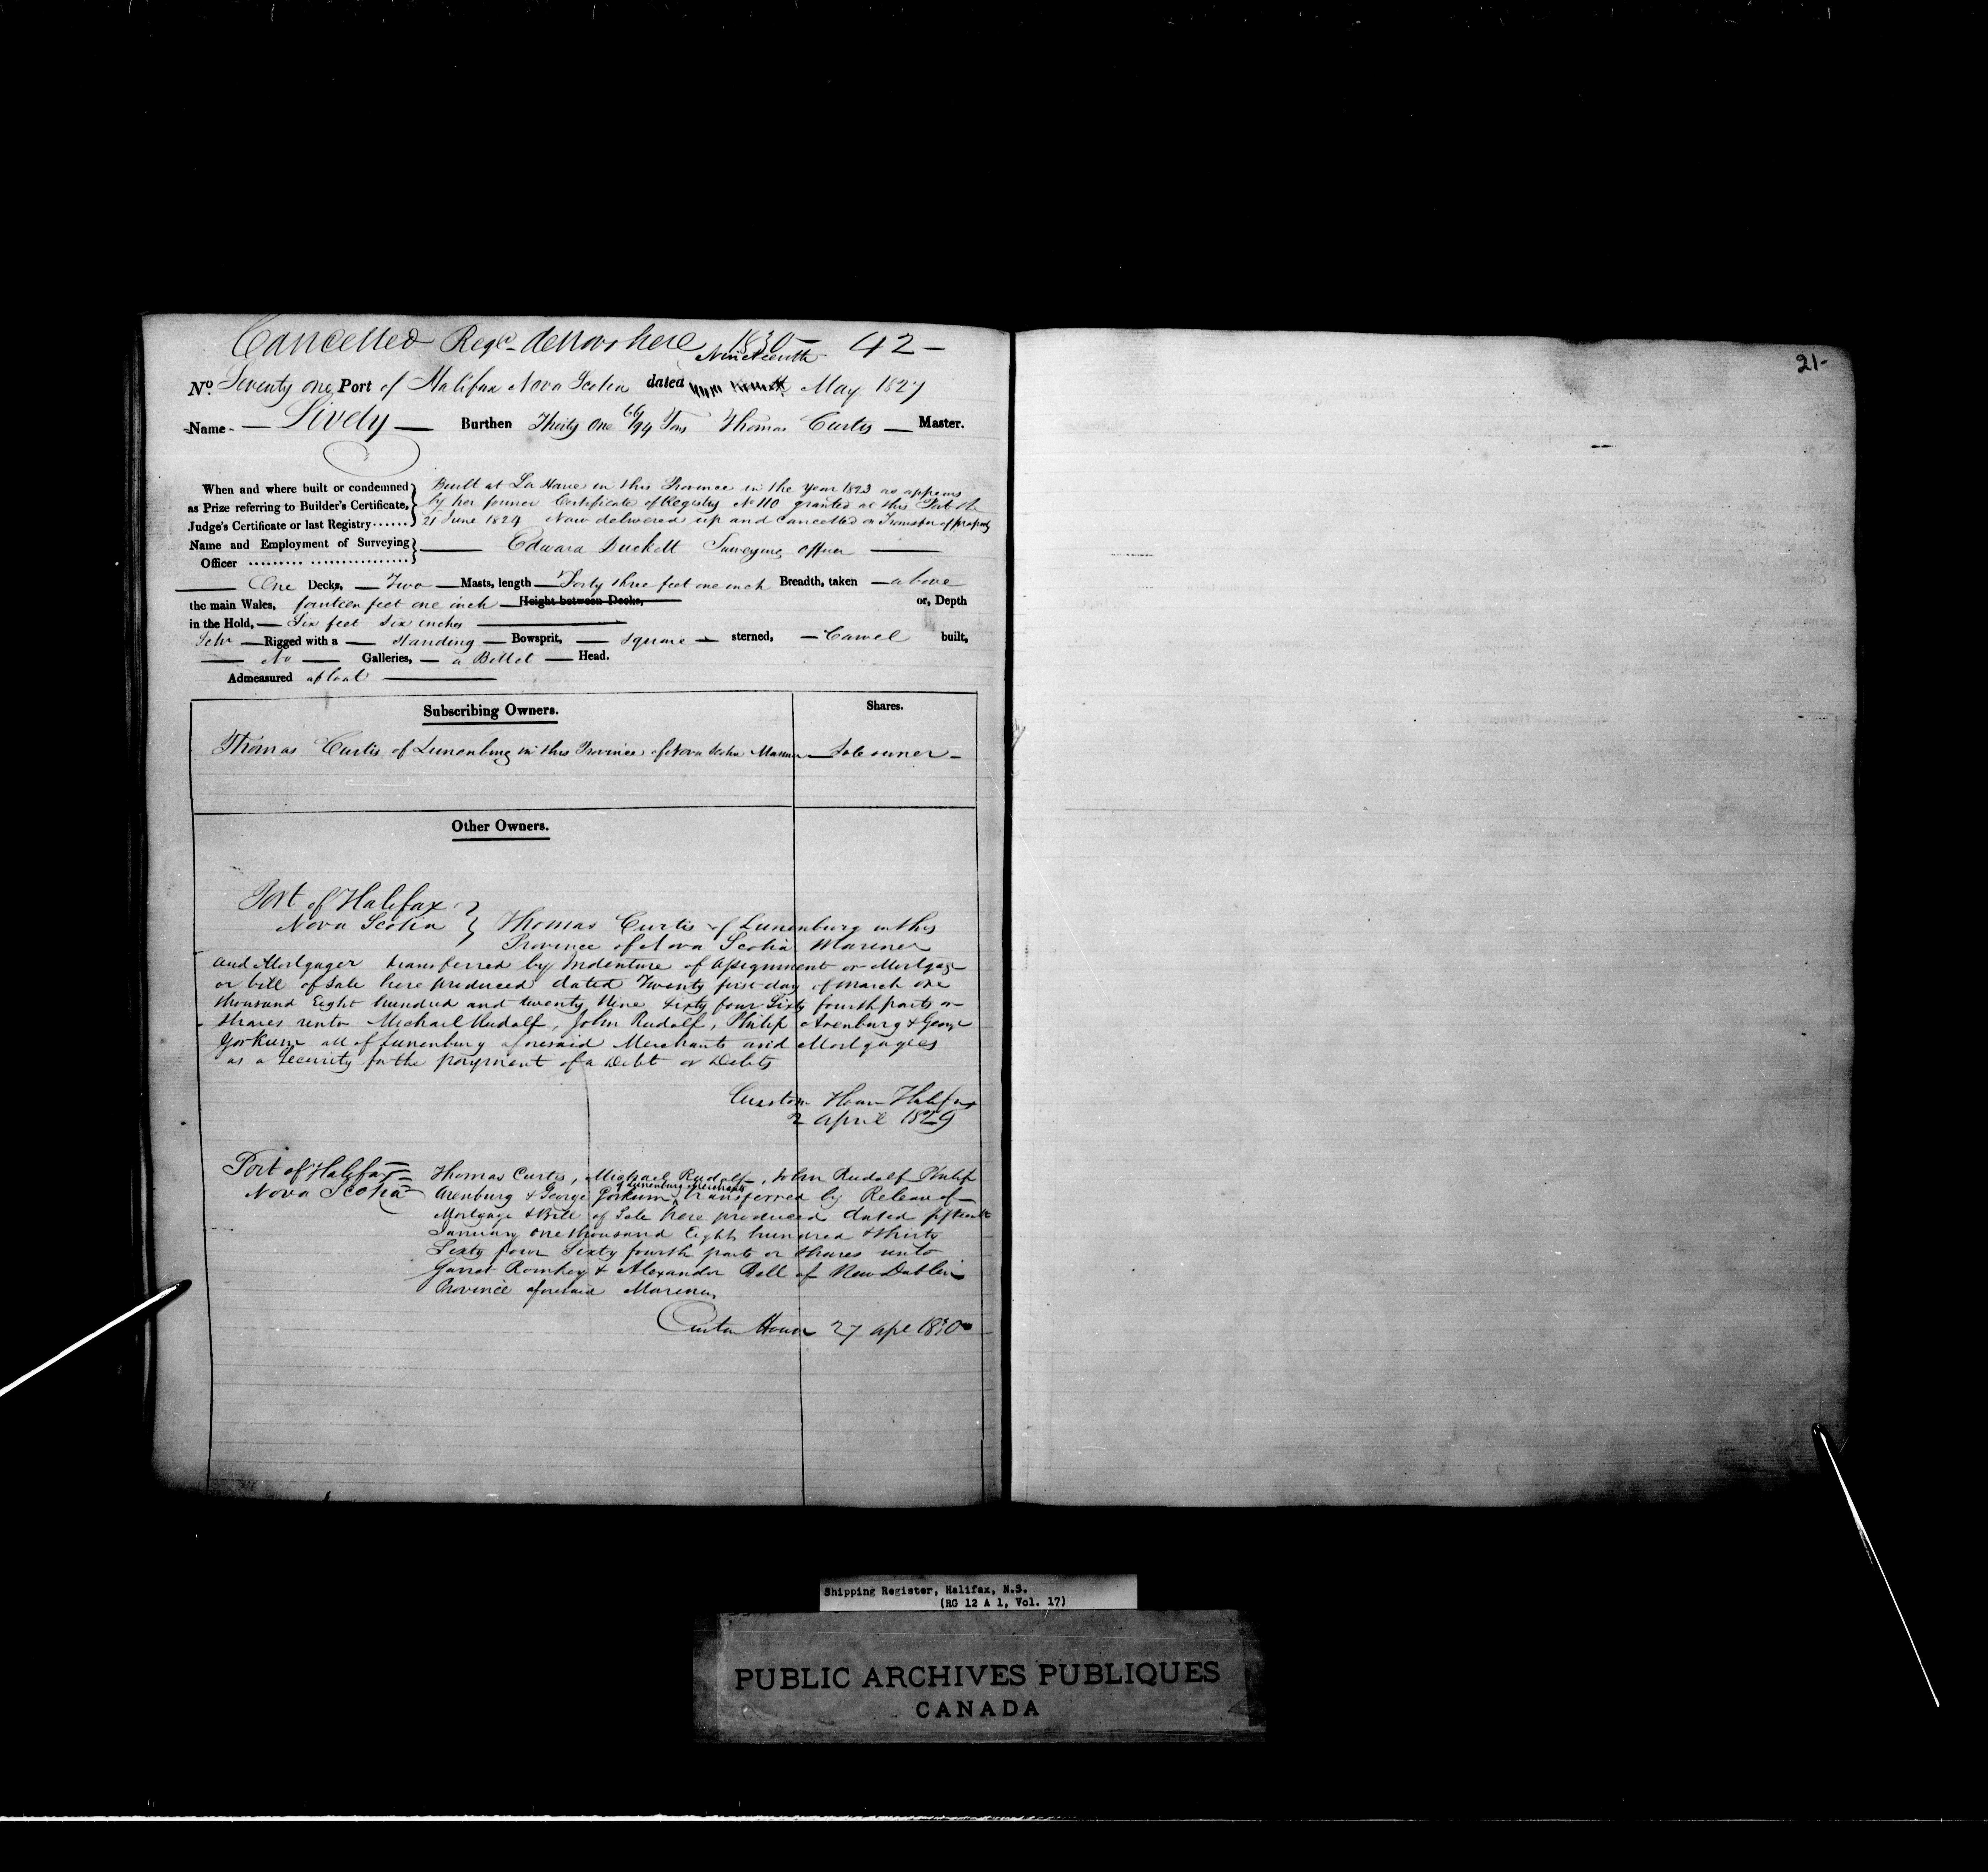 Cancelled Regd de Novo here 1830 - 42 -
Nineteenth
No. Seventy one Port of Halifax Nova Scotia dated May 1827
Name - Lively - Burthen Thirty One 66/94 Tons Thomas Curtis - Master.
When and where built or condemned } Built at La Have in this Province in the Year 1823 as appears
as Prize referring to Builder's Certificate, } by her former Certificate of Registry No 110 granted at this Port the
Judge's Certificate or last Registry...... } 21 June 1824 Now delivered up and Cancelled on Transfer of property
Name and Employment of Surveying } Edward Duckett Surveying Officer
Officer
One Decks, - Two - Masts, length - Forty three feet one inch Breadth, taken - above
the main Wales, fourteen feet one inch - Height between Decks, or, Depth
in the Hold, - Six feet Six inches
Schr - Rigged with a - Standing - Bowsprit, - Square - sterned, - Carvel built,
No - Galleries, - a Billet - Head.
Admeasured afloat
Subscribing Owners. Shares.
Thomas Curtis of Lunenburg in this Province of Nova Scotia Mariner - Sole owner -
Other Owners.
Port of Halifax }
Nova Scotia } Thomas Curtis of Lunenburg in this
Province of Nova Scotia Mariner
and Mortgager transferred by Indenture of Assignment or Mortgage
or bill of Sale here produced dated Twenty first day of March one
thousand Eight hundred and twenty Nine Sixty four Sixty fourth parts or
Shares unto Michael Rudolf, John Rudolf, Philip Arenburg & George
Yorkum all of Lunenburg aforesaid Merchants and Mortgagees
as a Security for the payment of a Debt or Debts
Custom House Halifax
2 April 1829
Port of Halifax Thomas Curtis, Michael Rudolf, John Rudolf Philip
of Lunenburg Merchants
Nova Scotia Arenburg & George Yorkum, transferred by Release of
Mortgage & Bill of Sale here produced dated fifteenth
January one thousand Eight hundred & thirty
Sixty four Sixty fourth parts or Shares unto
Garret Romkey & Alexander Bell of New Dublin
Province aforesaid Mariners
Custom House 27 Apl 1830
21-
Shipping Register, Halifax, N.S.
(RG 12 A 1, Vol. 17)
PUBLIC ARCHIVES PUBLIQUES
CANADA